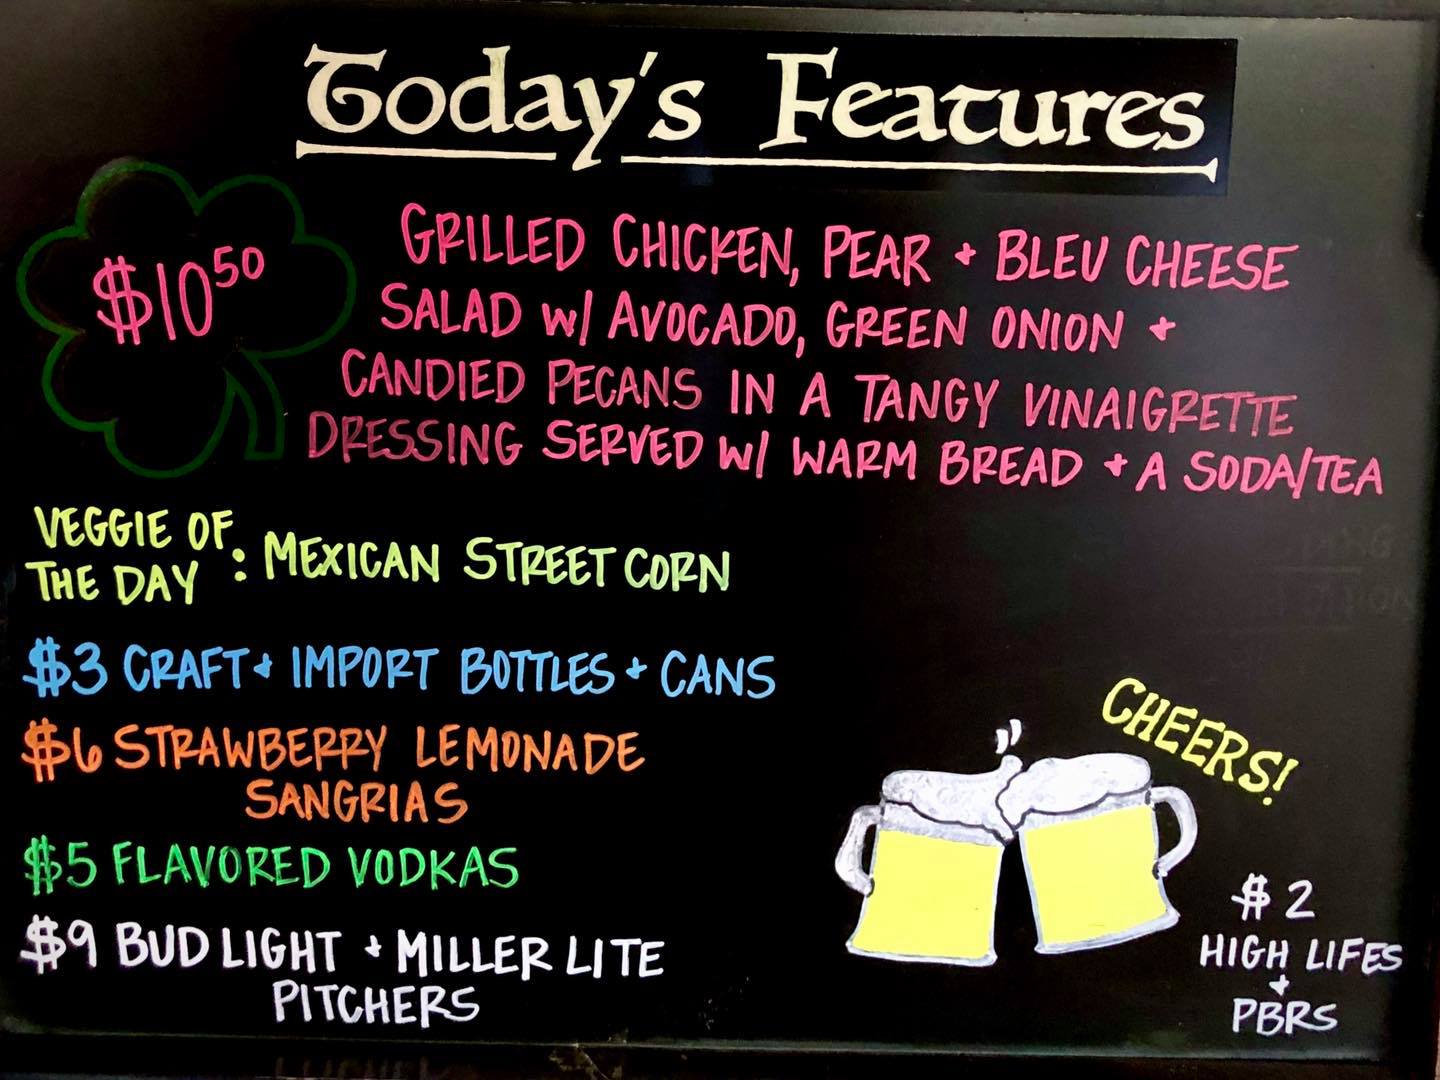 Today's Features
$10⁵⁰
GRILLED CHICKEN, PEAR + BLEU CHEESE
SALAD W/ AVOCADO, GREEN ONION +
CANDIED PECANS IN A TANGY VINAIGRETTE
DRESSING SERVED W/ WARM BREAD + A SODA/TEA
VEGGIE OF
THE DAY : MEXICAN STREET CORN
$3 CRAFT + IMPORT BOTTLES + CANS
$6 STRAWBERRY LEMONADE
SANGRIAS
$5 FLAVORED VODKAS
$9 BUD LIGHT + MILLER LITE
PITCHERS
CHEERS!
$2
HIGH LIFES
+
PBRS